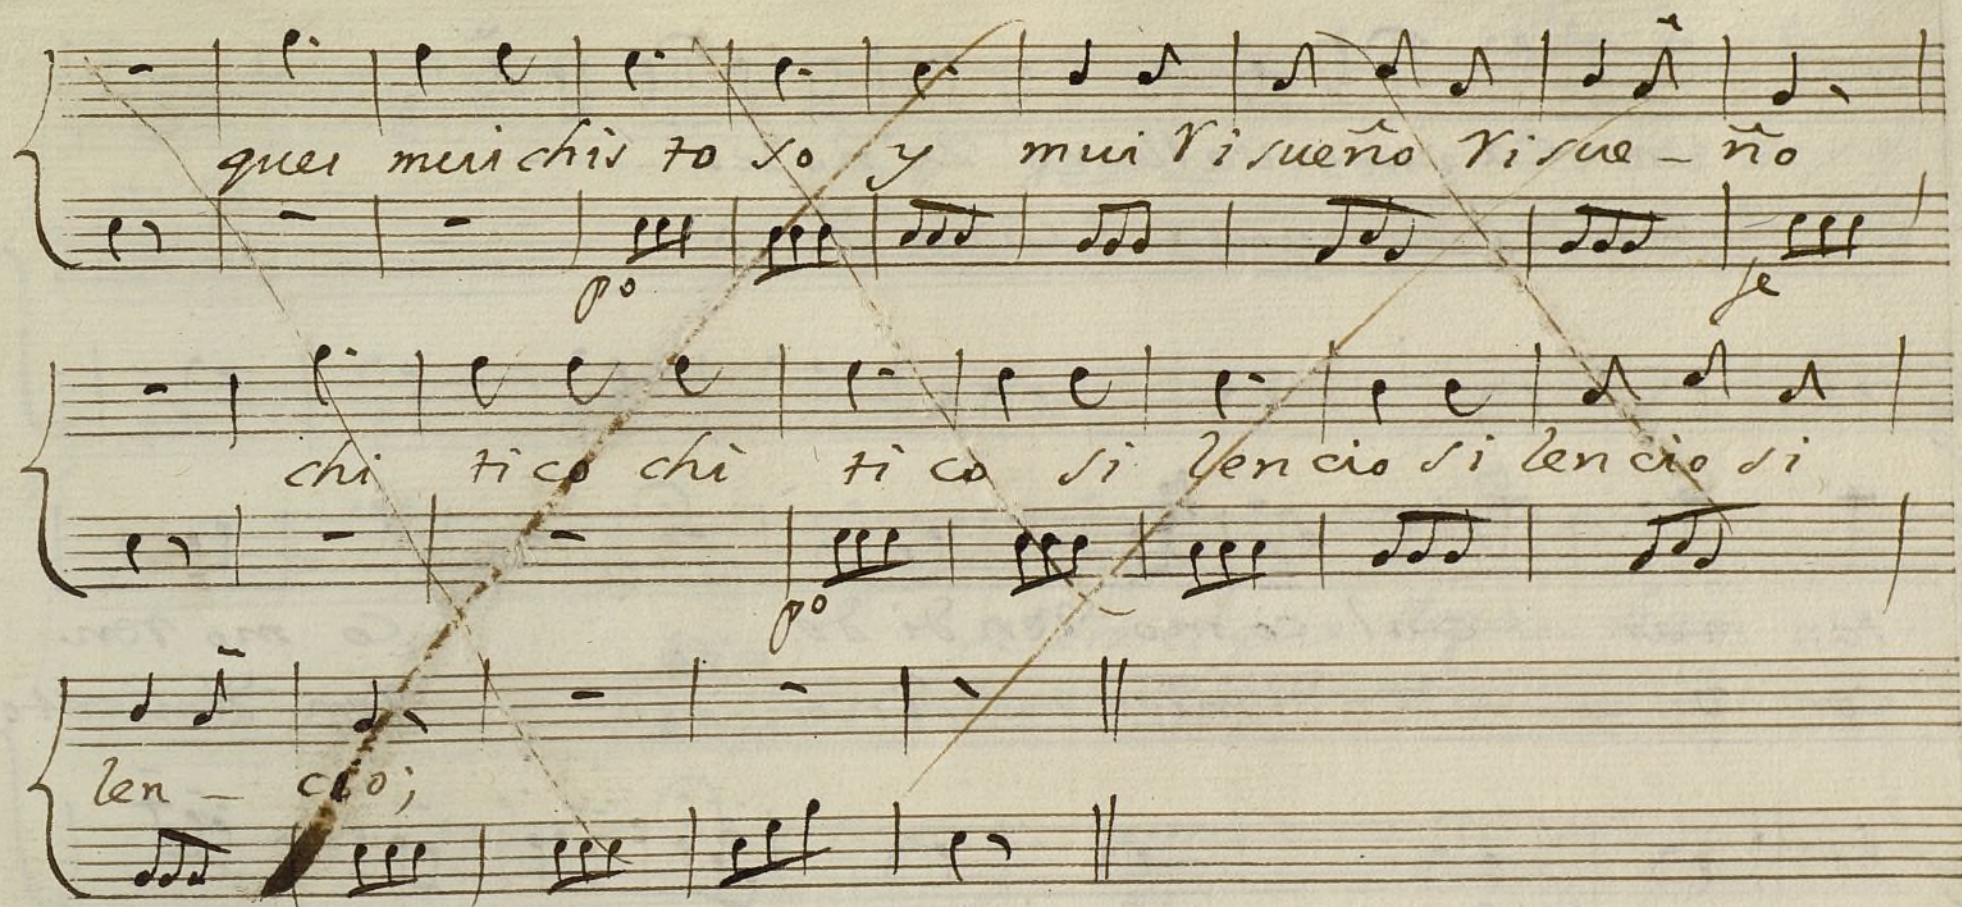 quei mui chis to so y mui Ri sueño Ri sue - ño
po fe
chi ti co chi ti co si len cio si len cio si
po
len - cio;